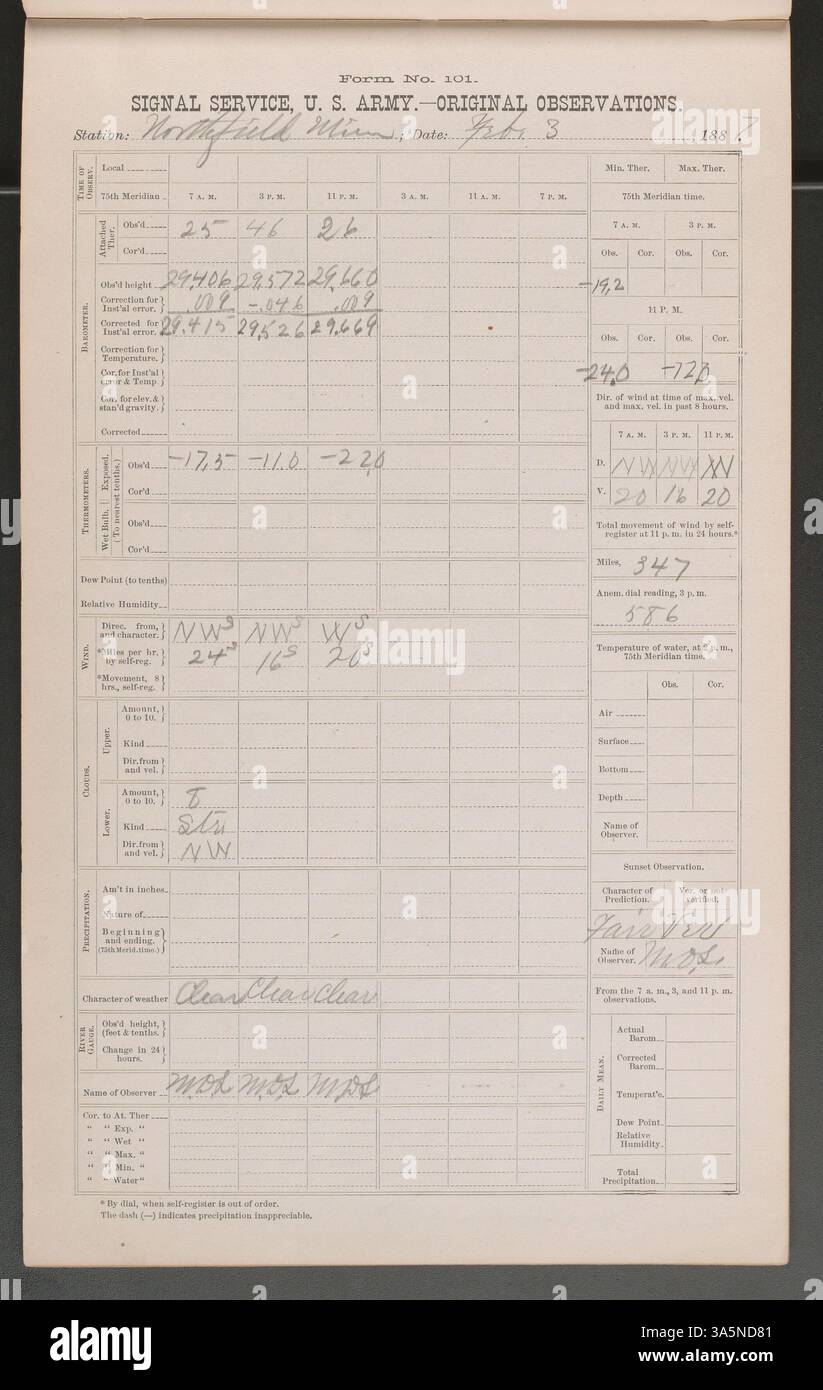 Form No. 101.
SIGNAL SERVICE, U. S. ARMY.—ORIGINAL OBSERVATIONS.
Station: Northfield Minn ; Date: Feb. 3 , 1887.
TIME OF OBSERV.
Local
75th Meridian 7 A. M. 3 P. M. 11 P. M. 3 A. M. 11 A. M. 7 P. M.
BAROMETER.
Attached Ther.
Obs'd 25 46 26
Cor'd
Obs'd height 29.406 29.572 29.660
Correction for Inst'al error. .009 -.046 .009
Corrected for Inst'al error. 29.415 29.526 29.669
Correction for Temperature.
Cor. for Inst'al error & Temp
Cor. for elev. & stan'd gravity.
Corrected
THERMOMETERS.
(To nearest tenths.)
Exposed.
Obs'd -17.5 -11.0 -22.0
Cor'd
Wet Bulb.
Obs'd
Cor'd
Dew Point (to tenths)
Relative Humidity
WIND.
Direc. from, and character. NWS NWS WS
*Miles per hr. by self-reg. 24S 16S 20S
*Movement, 8 hrs., self-reg.
CLOUDS.
Upper.
Amount, 0 to 10.
Kind
Dir. from and vel.
Lower.
Amount, 0 to 10.
Kind Str
Dir. from and vel. NW
PRECIPITATION.
Am't in inches
Nature of
Beginning and ending. (75th Merid. time.)
Character of weather Clear Clear Clear
RIVER GAUGE.
Obs'd height, (feet & tenths.)
Change in 24 hours.
Name of Observer
Cor. to At. Ther
" " Exp. "
" " Wet "
" " Max. "
" " Min. "
" " Water "
* By dial, when self-register is out of order.
The dash (—) indicates precipitation inappreciable.
Min. Ther. Max. Ther.
75th Meridian time.
7 A. M. 3 P. M.
Obs. Cor. Obs. Cor.
-19.2
11 P. M.
Obs. Cor. Obs. Cor.
-24.0
Dir. of wind at time of max. vel. and max. vel. in past 8 hours.
7 A. M. 3 P. M. 11 P. M.
D. NW NW
V. 20 16 20
Total movement of wind by self-register at 11 p. m. in 24 hours.*
Miles, 347
Anem. dial reading, 3 p. m.
586
Temperature of water, at 2 p. m., 75th Meridian time.
Obs. Cor.
Air
Surface
Bottom
Depth
Name of Observer.
Sunset Observation.
Character of Prediction. Ver. or not verified.
Fair Veri
Name of Observer.
From the 7 a. m., 3, and 11 p. m. observations.
DAILY MEAN.
Actual Barom
Corrected Barom
Temperat'e.
Dew Point
Relative Humidity.
Total Precipitation
alamy
Image ID: 3A5ND81
www.alamy.com